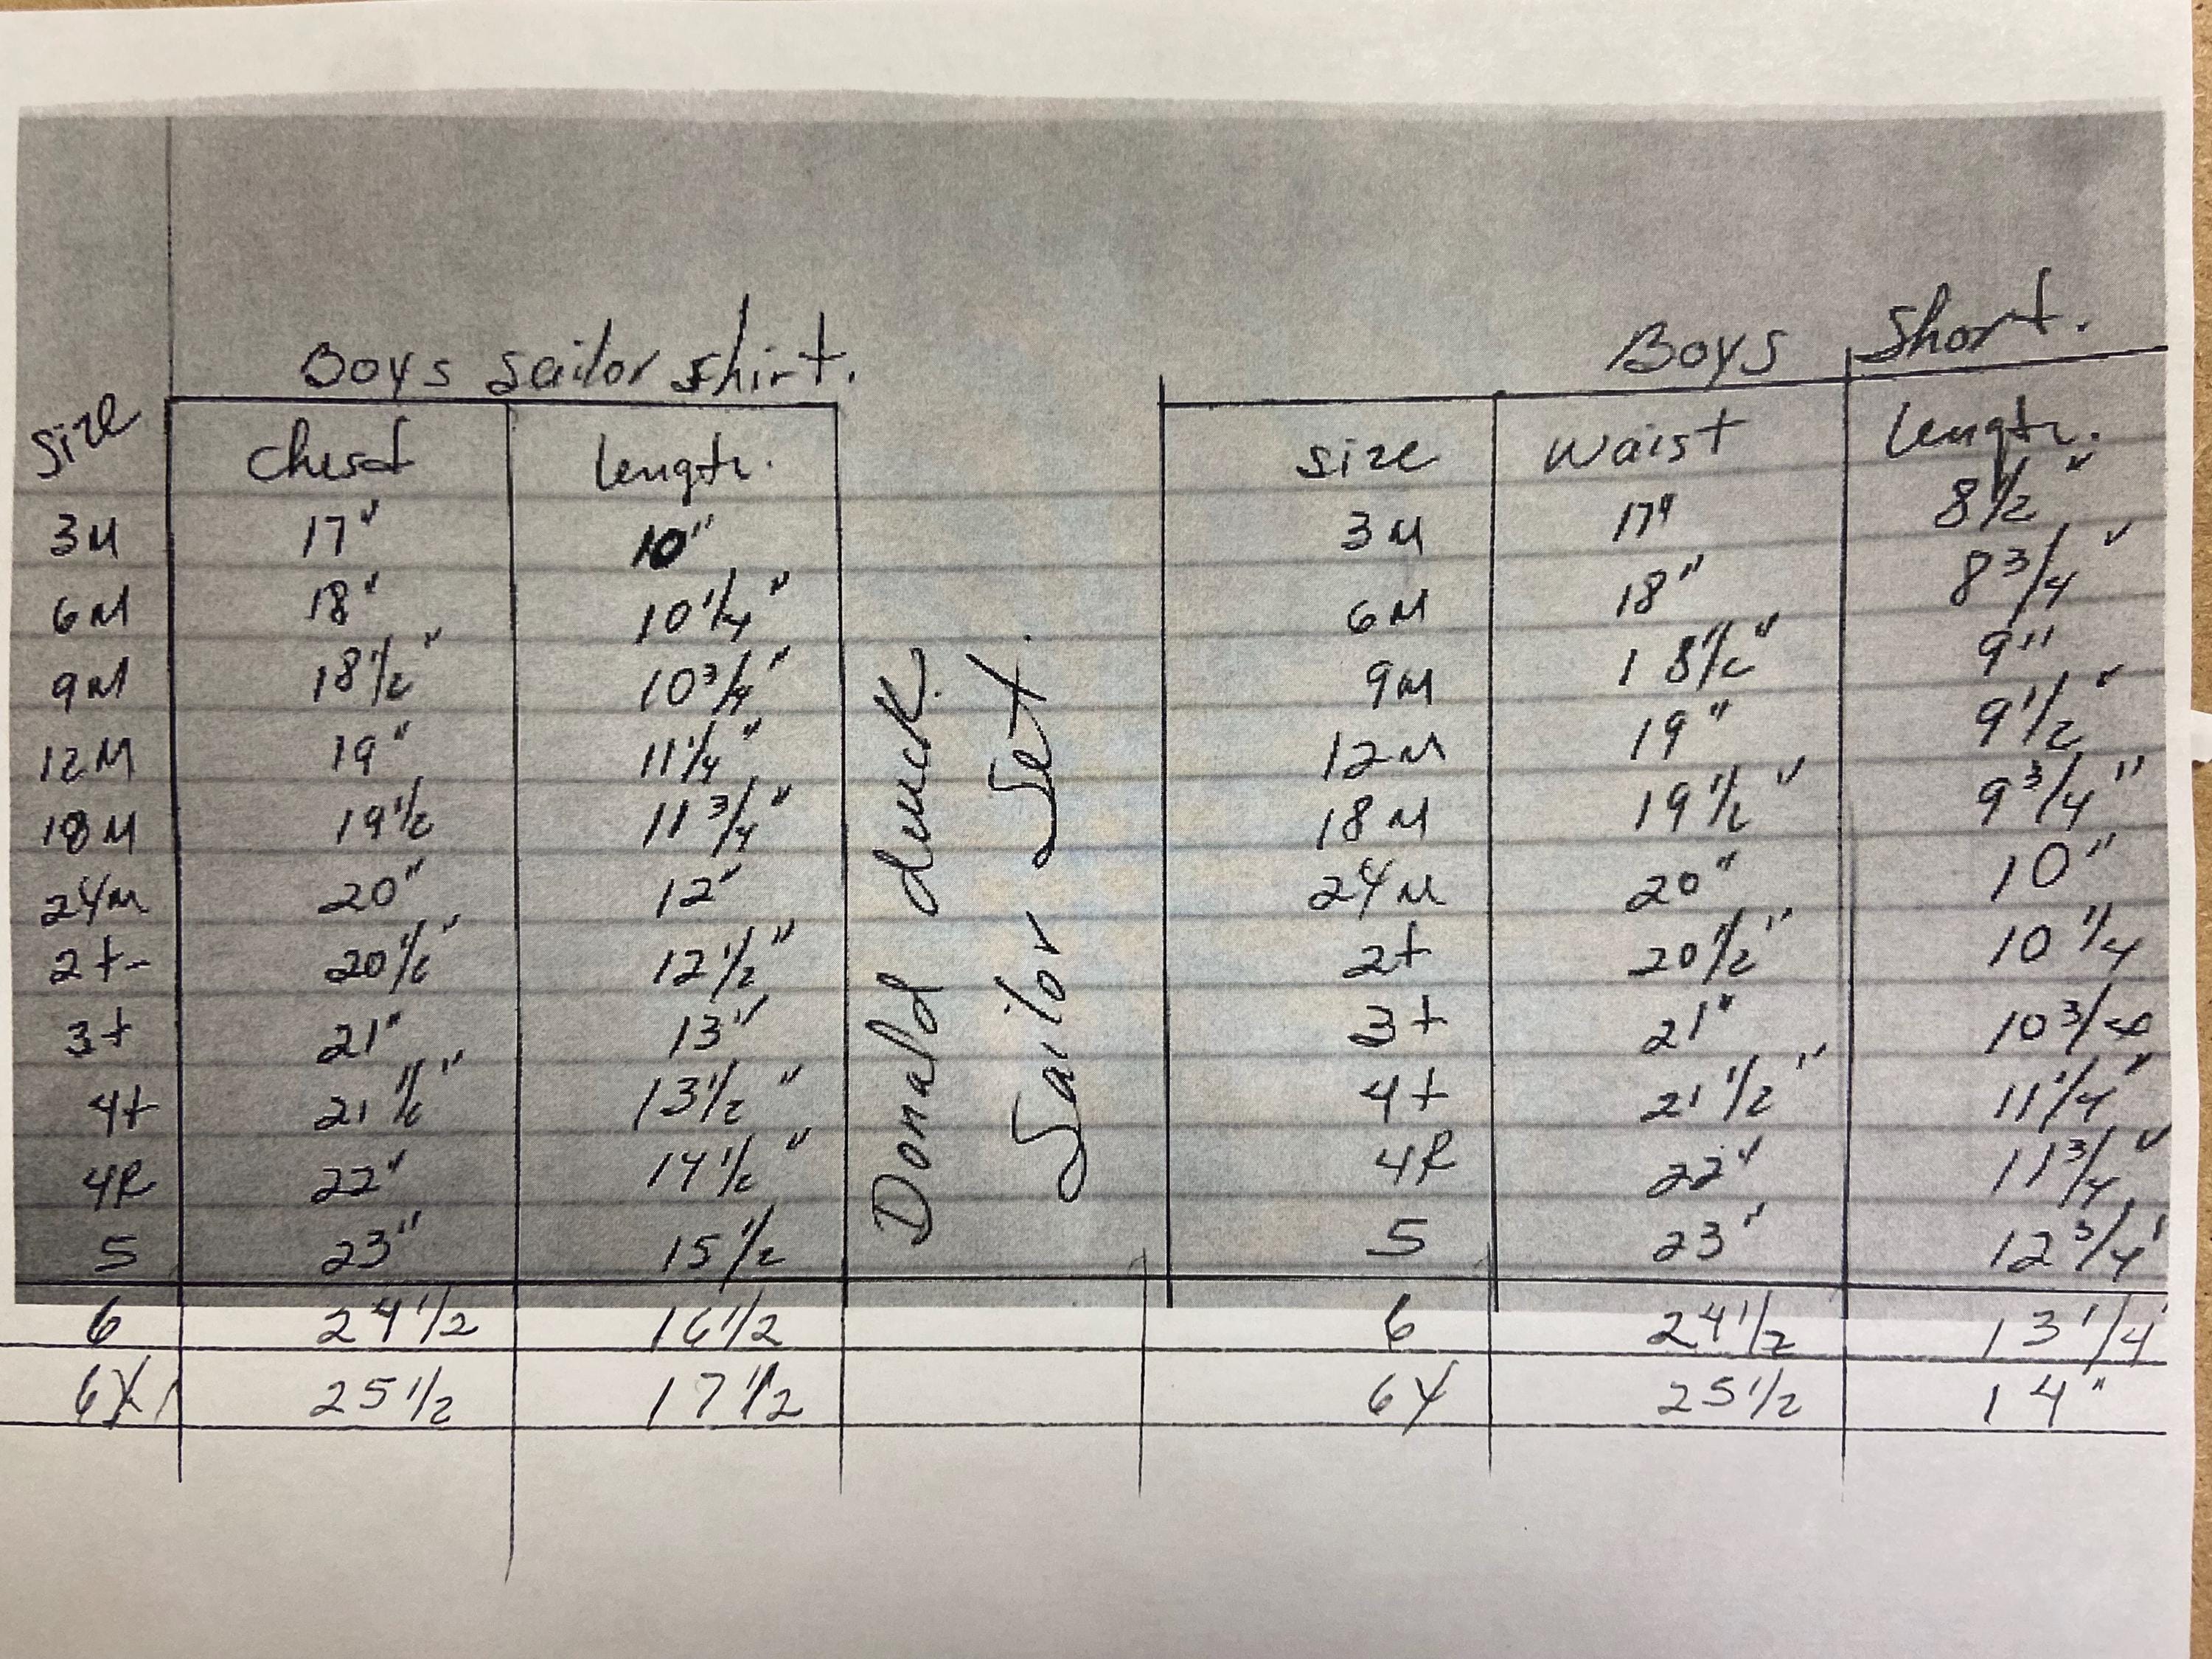 Boys sailor shirt.
Size chest length.
3M 17" 10"
6M 18" 10 1/4"
9M 18 1/2" 10 3/4"
12M 19" 11 1/4"
18M 19 1/2 11 3/4"
24M 20" 12"
2t- 20 1/2" 12 1/2"
3t 21" 13"
4t 21 1/2" 13 1/2"
4R 22" 14 1/2"
5 23" 15 1/2
6 24 1/2 16 1/2
6X 25 1/2 17 1/2
Donald duck.
Sailor Set.
Boys Short.
size waist length.
3M 17" 8 1/2"
6M 18" 8 3/4"
9M 18 1/2" 9"
12M 19" 9 1/2"
18M 19 1/2" 9 3/4"
24M 20" 10"
2t 20 1/2" 10 1/4
3t 21" 10 3/4
4t 21 1/2" 11 1/4"
4R 22" 11 3/4"
5 23" 12 3/4"
6 24 1/2 13 1/4
6X 25 1/2 14"